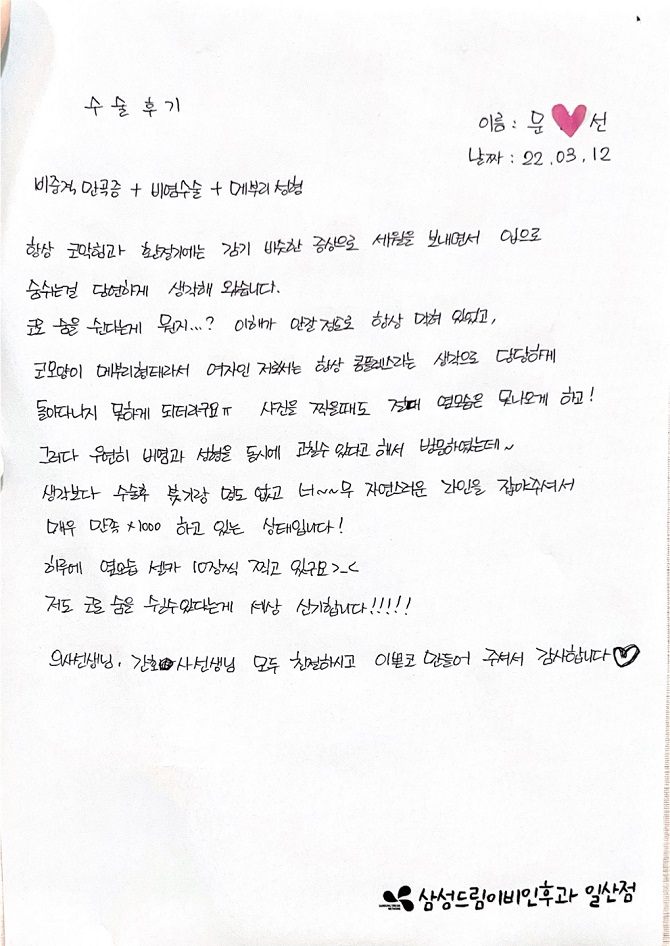 수술후기
이름 : 문 선
날짜 : 22.03.12
비중격 만곡증 + 비염수술 + 메부리 성형
항상 코막힘과 환절기에는 감기 비슷한 증상으로 세월을 보내면서 입으로
숨쉬는걸 당연하게 생각해 왔습니다.
코로 숨을 쉰다는게 뭔지...? 이해가 안갈 정도로 항상 막혀 있었고,
코모양이 메부리형태라서 여자인 저로써는 항상 콤플렉스라는 생각으로 당당하게
돌아다니지 못하게 되더라구요ㅠ 사진을 찍을때도 절대 옆모습은 못나오게 하고!
그러다 우연히 비염과 성형을 동시에 고칠수 있다고 해서 방문하였는데~
생각보다 수술후 붓기랑 멍도 없고 너~~무 자연스러운 라인을 잡아주셔서
매우 만족 x1000 하고 있는 상태입니다!
하루에 옆모습 셀카 10장씩 찍고 있구요>_<
저도 코로 숨을 쉴수있다는게 세상 신기합니다!!!!!
의사선생님, 간호사선생님 모두 친절하시고 이쁜코 만들어 주셔서 감사합니다♡
삼성드림이비인후과 일산점